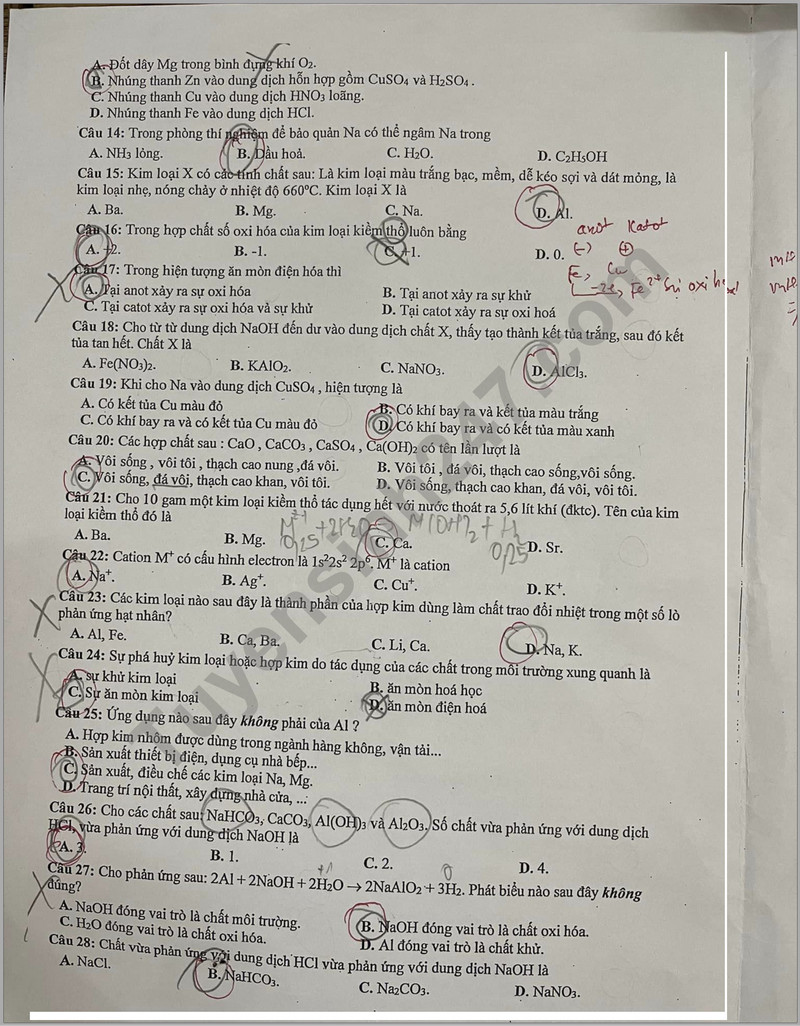 A. Đốt dây Mg trong bình đựng khí O₂.
B. Nhúng thanh Zn vào dung dịch hỗn hợp gồm CuSO₄ và H₂SO₄.
C. Nhúng thanh Cu vào dung dịch HNO₃ loãng.
D. Nhúng thanh Fe vào dung dịch HCl.
Câu 14: Trong phòng thí nghiệm để bảo quản Na có thể ngâm Na trong
A. NH₃ lỏng. B. Dầu hoả. C. H₂O. D. C₂H₅OH
Câu 15: Kim loại X có các tính chất sau: Là kim loại màu trắng bạc, mềm, dễ kéo sợi và dát mỏng, là
kim loại nhẹ, nóng chảy ở nhiệt độ 660°C. Kim loại X là
A. Ba. B. Mg. C. Na. D. Al.
anot Katot
Câu 16: Trong hợp chất số oxi hóa của kim loại kiềm thổ luôn bằng
A. +2. B. -1. C. +1. D. 0. (-) (+)
Fe, Cu
Câu 17: Trong hiện tượng ăn mòn điện hóa thì
-2e, Fe²⁺ Sự oxi hóa
A. Tại anot xảy ra sự oxi hóa B. Tại anot xảy ra sự khử
C. Tại catot xảy ra sự oxi hóa và sự khử D. Tại catot xảy ra sự oxi hoá
Câu 18: Cho từ từ dung dịch NaOH đến dư vào dung dịch chất X, thấy tạo thành kết tủa trắng, sau đó kết
tủa tan hết. Chất X là
A. Fe(NO₃)₂. B. KAlO₂. C. NaNO₃. D. AlCl₃.
Câu 19: Khi cho Na vào dung dịch CuSO₄ , hiện tượng là
A. Có kết tủa Cu màu đỏ B. Có khí bay ra và kết tủa màu trắng
C. Có khí bay ra và có kết tủa Cu màu đỏ D. Có khí bay ra và có kết tủa màu xanh
Câu 20: Các hợp chất sau : CaO , CaCO₃ , CaSO₄ , Ca(OH)₂ có tên lần lượt là
A. Vôi sống , vôi tôi , thạch cao nung ,đá vôi. B. Vôi tôi , đá vôi, thạch cao sống,vôi sống.
C. Vôi sống, đá vôi, thạch cao khan, vôi tôi. D. Vôi sống, thạch cao khan, đá vôi, vôi tôi.
Câu 21: Cho 10 gam một kim loại kiềm thổ tác dụng hết với nước thoát ra 5,6 lít khí (đktc). Tên của kim
loại kiềm thổ đó là
M + 2H₂O → M(OH)₂ + H₂
A. Ba. B. Mg. 0,25 C. Ca. 0,25 D. Sr.
Câu 22: Cation M⁺ có cấu hình electron là 1s²2s² 2p⁶. M⁺ là cation
A. Na⁺. B. Ag⁺. C. Cu⁺. D. K⁺.
Câu 23: Các kim loại nào sau đây là thành phần của hợp kim dùng làm chất trao đổi nhiệt trong một số lò
phản ứng hạt nhân?
A. Al, Fe. B. Ca, Ba. C. Li, Ca. D. Na, K.
Câu 24: Sự phá huỷ kim loại hoặc hợp kim do tác dụng của các chất trong môi trường xung quanh là
A. sự khử kim loại B. ăn mòn hoá học
C. Sự ăn mòn kim loại D. ăn mòn điện hoá
Câu 25: Ứng dụng nào sau đây không phải của Al ?
A. Hợp kim nhôm được dùng trong ngành hàng không, vận tải...
B. Sản xuất thiết bị điện, dụng cụ nhà bếp...
C. Sản xuất, điều chế các kim loại Na, Mg.
D. Trang trí nội thất, xây dựng nhà cửa, ...
Câu 26: Cho các chất sau: NaHCO₃, CaCO₃, Al(OH)₃ và Al₂O₃. Số chất vừa phản ứng với dung dịch
HCl, vừa phản ứng với dung dịch NaOH là
A. 3. B. 1. C. 2. D. 4.
+1 0
Câu 27: Cho phản ứng sau: 2Al + 2NaOH + 2H₂O → 2NaAlO₂ + 3H₂. Phát biểu nào sau đây không
đúng?
A. NaOH đóng vai trò là chất môi trường. B. NaOH đóng vai trò là chất oxi hóa.
C. H₂O đóng vai trò là chất oxi hóa. D. Al đóng vai trò là chất khử.
Câu 28: Chất vừa phản ứng với dung dịch HCl vừa phản ứng với dung dịch NaOH là
A. NaCl. B. NaHCO₃. C. Na₂CO₃. D. NaNO₃.
Tuyensinh247.com